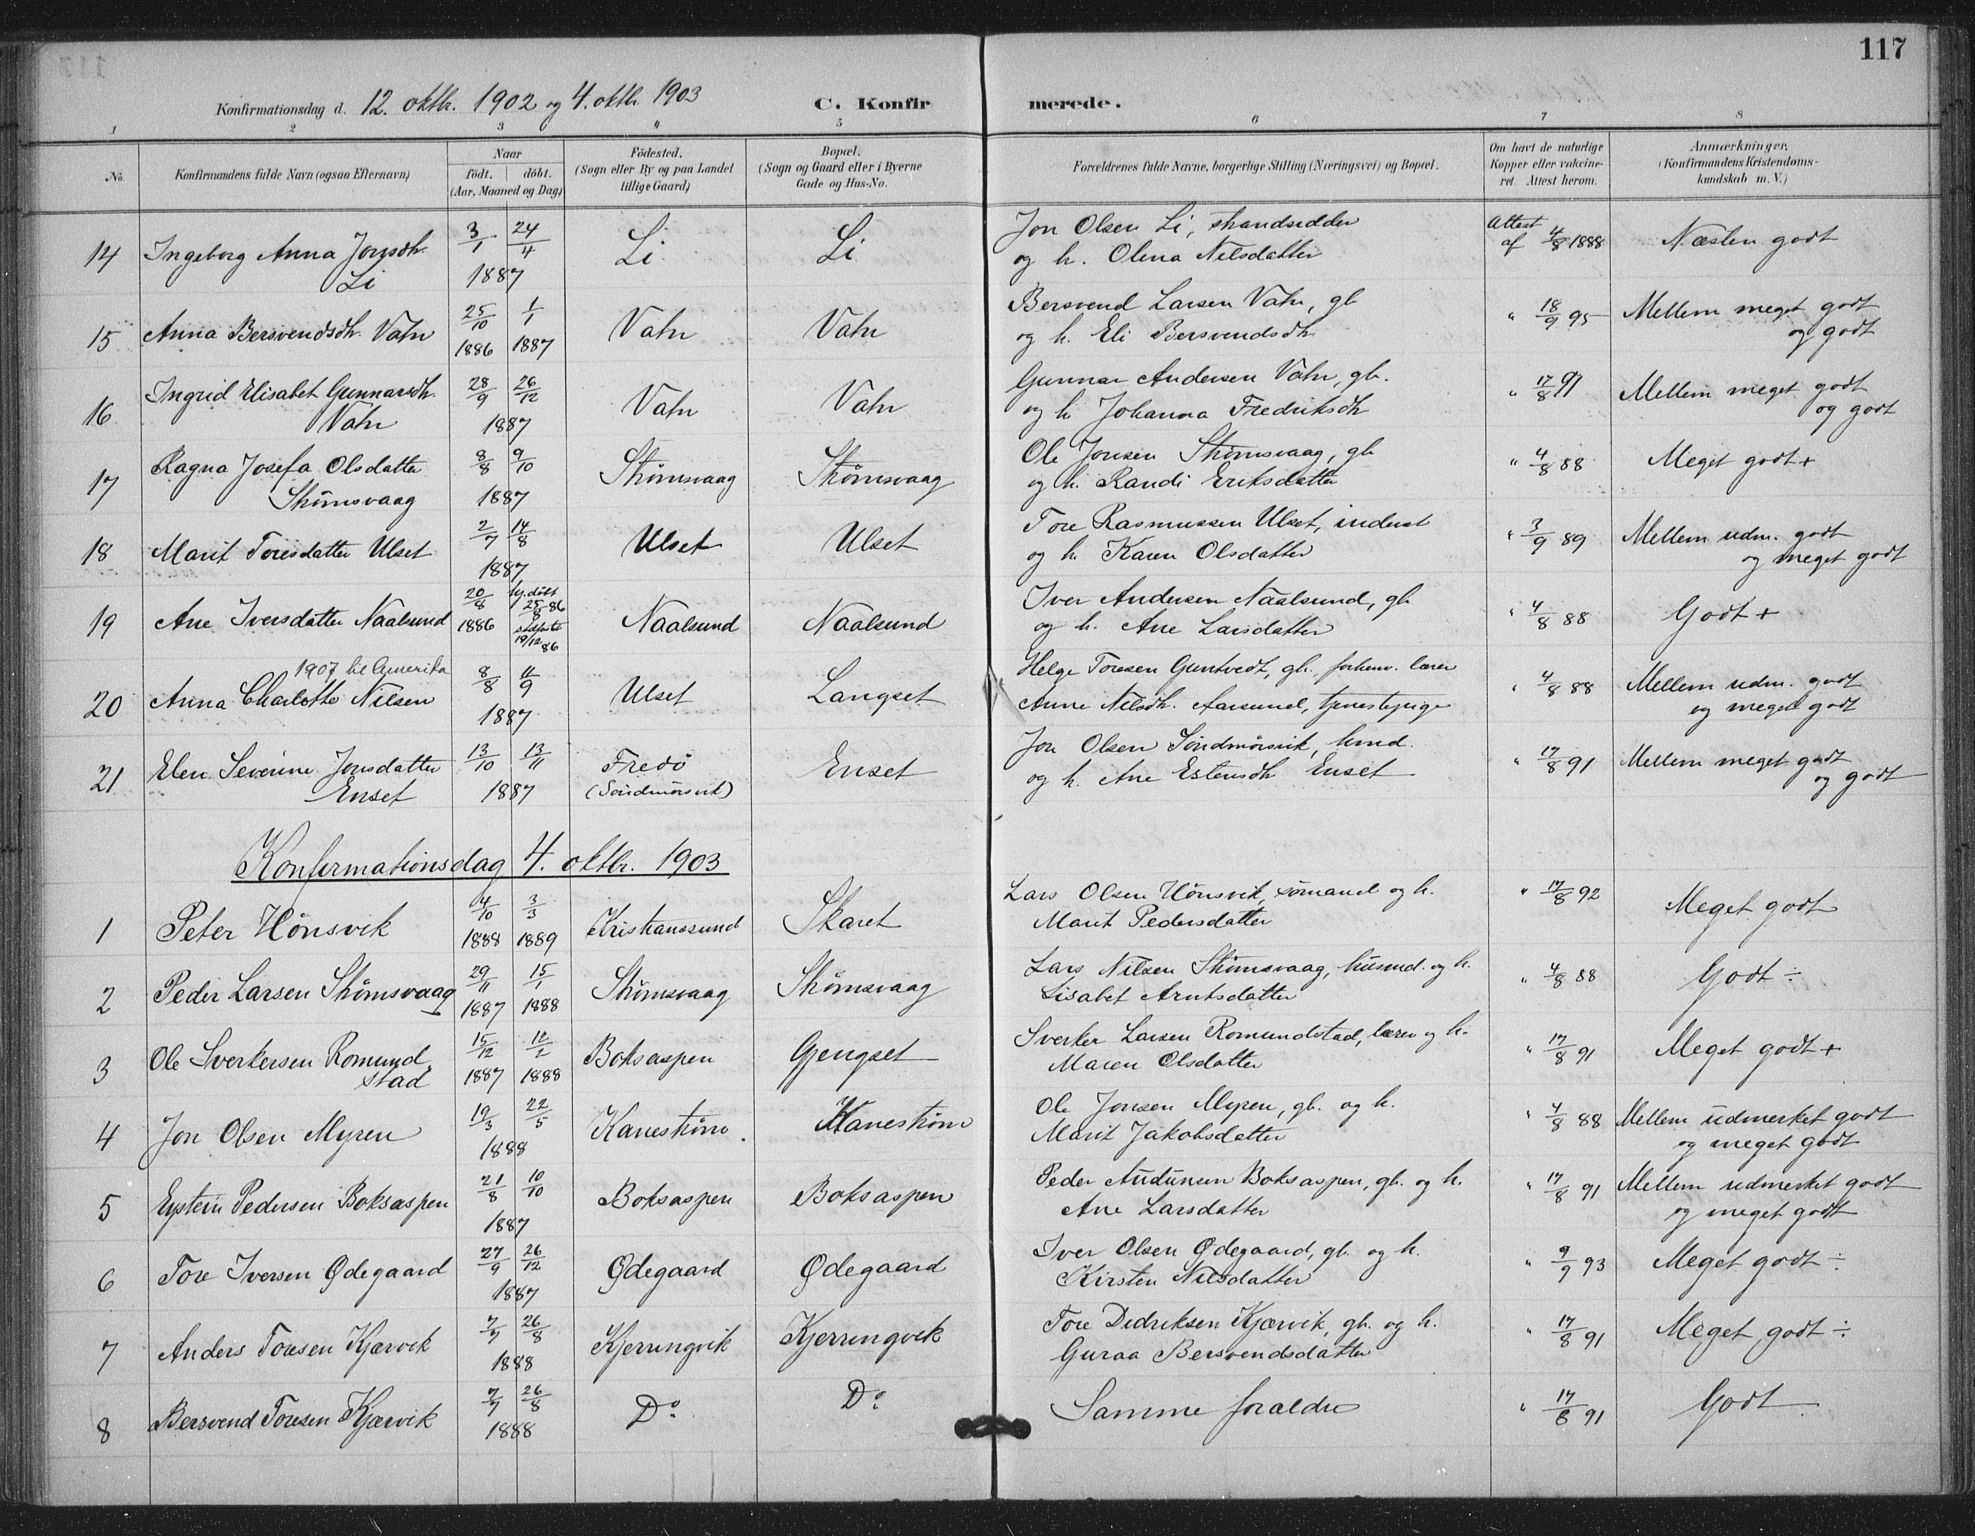 117
Konfirmationsdag d. 12. oktbr. 1902 og 4. oktbr. 1903 C. Konfir merede.
1 2 3 4 5 6 7 8
No. Konfirmandens fulde Navn (ogsaa Efternavn) Naar født. døbt. (Aar, Maaned og Dag) Fødested. (Sogn eller By og paa Landet tillige Gaard) Bopæl. (Sogn og Gaard eller i Byerne Gade og Hus-No. Forældrenes fulde Navne, borgerlige Stilling (Næringsvei) og Bopæl. Om havt de naturlige Kopper eller vakcineret. Attest herom. Anmærkninger. (Konfirmandens Kristendomskundskab m. V.)
14 Ingeborg Anna Jonsdtr. 3/1 24/4 Li Li Jon Olsen Li, strandsidder Attest af 4/8 1888 Næsten godt
Li 1887 og h. Olena Nilsdatter
15 Anna Bersvendsdtr. Vatn 25/10 1/1 Vatn Vatn Bersvend Larsen Vatn, gb. " 18/9 95 Mellem meget godt
1886 1887 og h. Eli Bersvendsdtr. og godt
16 Ingrid Elisabet Gunnarsdtr. 28/9 26/12 Vatn Vatn Gunnar Andersen Vatn, gb. " 17/8 91 Mellem meget godt
Vatn 1887 og h. Johanna Fredriksdtr og godt
17 Ragna Josefa Olsdatter 8/8 9/10 Strømsvaag Strømsvaag Ole Jonsen Strømsvaag, gb " 4/8 88 Meget godt +
Strømsvaag 1887 og h. Randi Eriksdatter
18 Marit Toresdatter Ulset 2/7 14/8 Ulset Ulset Tore Rasmussen Ulset, inderst " 3/9 89 Mellem udm. godt
1887 og h. Karen Olsdatter og meget godt
19 Ane Iversdatter Naalsund 20/8 hj.døbt 25/8 86 Naalsund Naalsund Iver Andersen Naalsund, gb " 4/8 88 Godt +
1886 19/12 86 og h. Ane Larsdatter
1907 til Amerika
20 Anna Charlotte Nilsen 8/8 11/9 Ulset Langset Helge Toresen Guntvedt, gb. forhenv. lærer " 4/8 88 Mellem udm. godt
1887 Anne Nilsdtr. Aarsund, tjenestepige og meget godt
21 Elen Severine Jonsdatter 13/10 13/11 Fredø Enset Jon Olsen Søndmørsvik, husmd. " 17/8 91 Mellem meget godt
Enset 1887 (Søndmørsvik) og h. Ane Estensdtr Enset og godt
Konfirmationsdag 4. oktbr. 1903
1 Peter Hønsvik 4/10 3/3 Kristianssund Skaret Lars Olsen Hønsvik, sømand og h. " 17/8 92 Meget godt
1888 1889 Marit Pedersdatter
2 Peder Larsen Strømsvaag 29/11 15/1 Strømsvaag Strømsvaag Lars Nilsen Strømsvaag, husmd. og h. " 4/8 88 Godt ÷
1887 1888 Lisabet Arntsdatter
3 Ole Sverkersen Romund- 15/12 12/2 Boksaspen Gjengset Sverker Larsen Romundstad, lærer og h. " 17/8 91 Meget godt +
stad 1887 1888 Maren Olsdatter
4 Jon Olsen Myren 19/3 22/5 Kanestrøm. Kanestrøm Ole Jonsen Myren, gb. og h. " 4/8 88 Mellem udmerket godt
1888 Marit Jakobsdatter og meget godt
5 Eystein Pedersen Boksaspen 21/8 10/10 Boksaspen Boksaspen Peder Audunsen Boksaspen, gb. og h. " 17/8 91 Mellem udmerket godt
1887 Ane Larsdatter og meget godt
6 Tore Iversen Ødegaard 27/9 26/12 Ødegaard Ødegaard Iver Olsen Ødegaard, gb. og h. " 9/9 93 Meget godt ÷
1887 Kirsten Nilsdatter
7 Anders Toresen Kjærvik 7/7 26/8 Kjerringvik Kjerringvik Tore Didriksen Kjærvik, gb. og h. " 17/8 91 Meget godt ÷
1888 Guraa Bersvendsdatter
8 Bersvend Toresen Kjærvik 7/7 26/8 Do. Do. Samme forældre " 17/8 91 Godt
1888